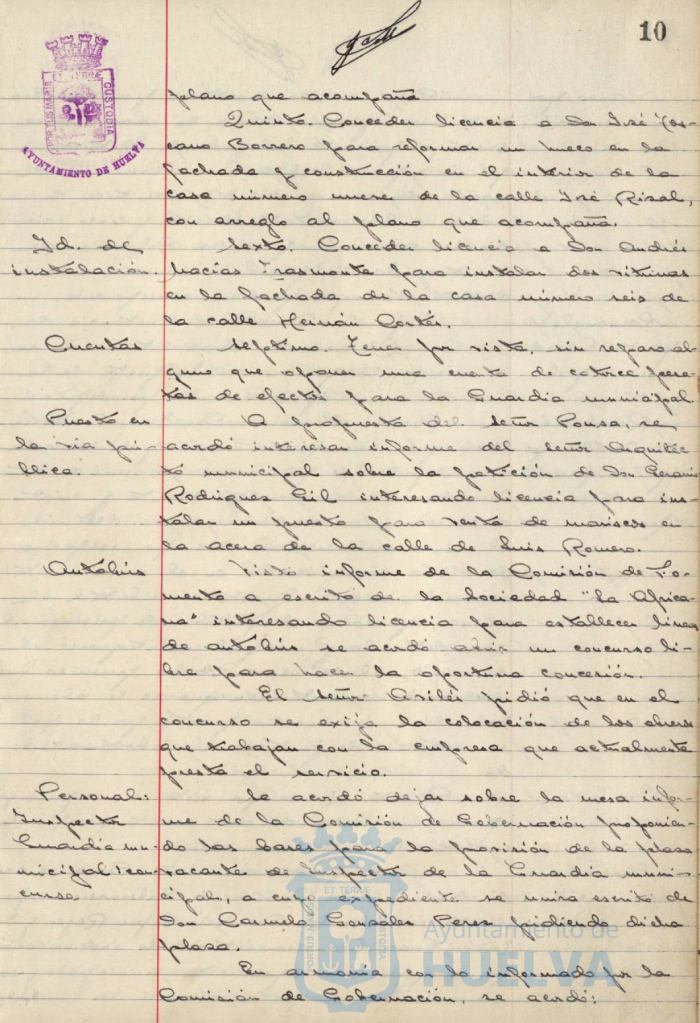 10
ET TERRÆ
PORTUS MARIS
CUSTODIA
AYUNTAMIENTO DE HUELVA
plano que acompaña
Quinto. Conceder licencia a Don José Tos-
cano Borrero para reformar un hueco en la
fachada y construcción en el interior de la
casa número nueve de la calle José Rizal,
con arreglo al plano que acompaña.
Id. de
instalación.
Sexto. Conceder licencia a Don Andrés
Macías Trasmonte para instalar dos vitrinas
en la fachada de la casa número seis de
la calle Hernán Cortés.
Cuentas
Septimo. Tener por vista, sin reparo al-
guno que oponer una cuenta de catorce pese-
tas de efectos para la Guardia municipal
Puesto en
la vía pú-
blica.
A propuesta del señor Ponsa, se
acordó interesar informe del señor Arquitec
to municipal sobre la petición de Don
Rodriguez Gil interesando licencia para ins-
talar un puesto para venta de mariscos en
la acera de la calle de Luis Romero.
Autobús
Visto informe de la Comisión de Fo-
mento a escrito de la Sociedad "La Africa-
na" interesando licencia para establecer linea
de autobús se acordó abrir un concurso li-
bre para hacer la oportuna concesión.
El señor Avilés pidió que en el
concurso se exija la colocación de los obreros
que trabajan con la empresa que actualmente
presta el servicio.
Personal:
Inspector
Guardia mu-
nicipal: con-
curso
Se acordó dejar sobre la mesa infor-
me de la Comisión de Gobernación proponien-
do las bases para la provisión de la plaza
vacante de Inspector de la Guardia muni-
cipal, a cuyo expediente se unira escrito de
Don Carmelo Gonzalez Perez pidiendo dicha
plaza.
En armonía con lo informado por la
Comisión de Gobernación, se acordó:
ET TERRÆ
PORTUS MARIS
CUSTODIA
Ayuntamiento de
HUELVA